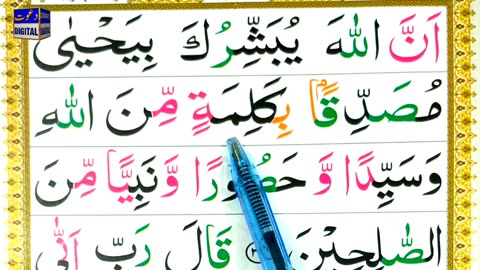 دعوت
DIGITAL
اَنَّ اللّٰهَ يُبَشِّرُكَ بِيَحْيٰى
مُصَدِّقًاۢ بِكَلِمَةٍ مِّنَ اللّٰهِ
وَسَيِّدًا وَّ حَصُوْرًا وَّ نَبِيًّا مِّنَ
الصّٰلِحِيْنَ قَالَ رَبِّ اَنّٰى